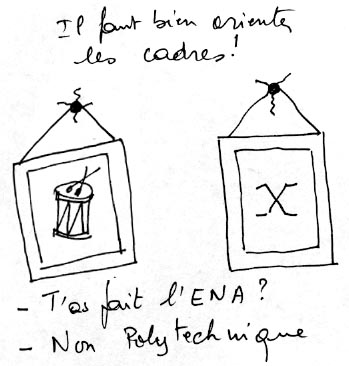 Il faut bien orienter
les cadres!
X
- T'as fait l'ENA?
- Non Polytechnique